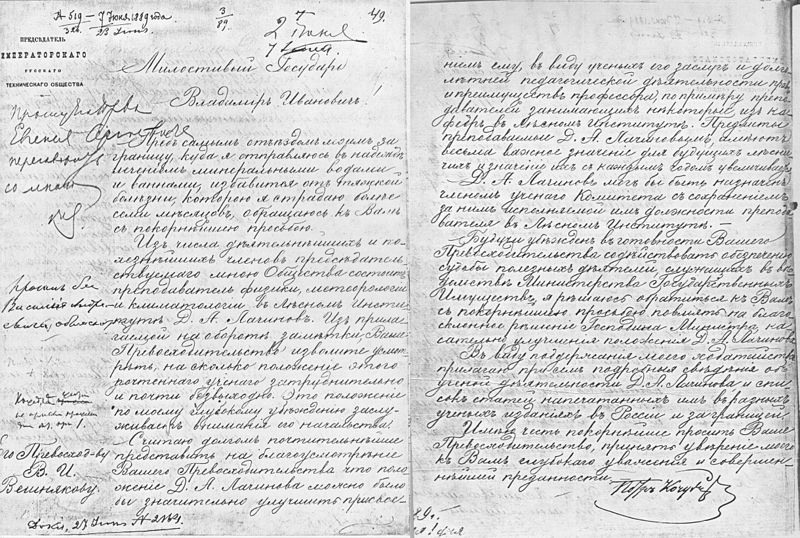 А 519 — 7 Июня 1889 года
49.
ПРЕДСЕДАТЕЛЬ
ИМПЕРАТОРСКАГО
РУССКАГО
ТЕХНИЧЕСКАГО ОБЩЕСТВА
Милостивый Государь
Владимиръ Ивановичъ!
Предъ самымъ отъѣздомъ моимъ за
границу, куда я отправляюсь въ надеждѣ
леченіемъ минеральными водами
и ваннами, избавится отъ тяжкой
болѣзни, которою я страдаю болѣе
семи мѣсяцовъ, обращаюсь къ Вамъ
съ покорнѣйшею просьбою.
Изъ числа дѣятельнѣйшихъ и по-
лезнѣйшихъ членовъ предсѣдатель-
ствуемаго мною Общества состоитъ
преподаватель физики, метеорологіи
и климатологіи въ Лѣсномъ Инсти-
тутѣ Д. А. Лачиновъ. Изъ прила-
гаемой на оборотѣ замѣтки, Ваше
Превосходительство изволите усмот-
рѣть, на сколько положеніе этого
почтеннаго ученаго затруднительно
и почти безвыходно. Это положеніе
по моему глубокому убѣжденію заслу-
живаетъ вниманія его начальства.
Считаю долгомъ почтительнѣйше
представить на благоусмотрѣніе
Вашего Превосходительства что поло-
женіе Д. А. Лачинова можно было
бы значительно улучшить присвое-
Его Превосход-ву
В. И.
Вешнякову.
ніемъ ему, въ виду ученыхъ его заслугъ и долго-
лѣтней педагогической дѣятельности правъ
и преимуществъ профессора, по примѣру препо-
давателей занимающихъ нѣкоторыя изъ ка-
ѳедръ въ Лѣсномъ Институтѣ. Предметы
преподаваемые Д. А. Лачиновымъ, имѣютъ
весьма важное значеніе для будущихъ лѣсни-
чихъ и значеніе ихъ съ каждымъ годомъ увеличивается.
Д. А. Лачиновъ могъ бы быть назначенъ
членомъ ученаго Комитета съ сохраненіемъ
за нимъ исполняемой имъ должности препода-
вателя въ Лѣсномъ Институтѣ.
Будучи убѣжденъ въ готовности Вашего
Превосходительства содѣйствовать обезпеченію
судьбы полезныхъ дѣятелей, служащихъ въ вѣ-
домствѣ Министерства Государственныхъ
Имуществъ, я рѣшаюсь обратиться къ Вамъ
съ покорнѣйшею просьбою повліять на благо-
склонное рѣшеніе Господина Министра, ка-
сательно улучшенія положенія Д. А. Лачинова.
Въ виду поддержанія моего ходатайства
прилагаю при семъ подробныя свѣдѣнія объ
ученой дѣятельности Д. А. Лачинова и спи-
сокъ статей напечатанныхъ имъ въ разныхъ
ученыхъ изданіяхъ въ Россіи и за границей.
Имѣю честь покорнѣйше просить Ваше
Превосходительство, принять увѣреніе моего
къ Вамъ глубокаго уваженія и совершен-
нѣйшей преданности.